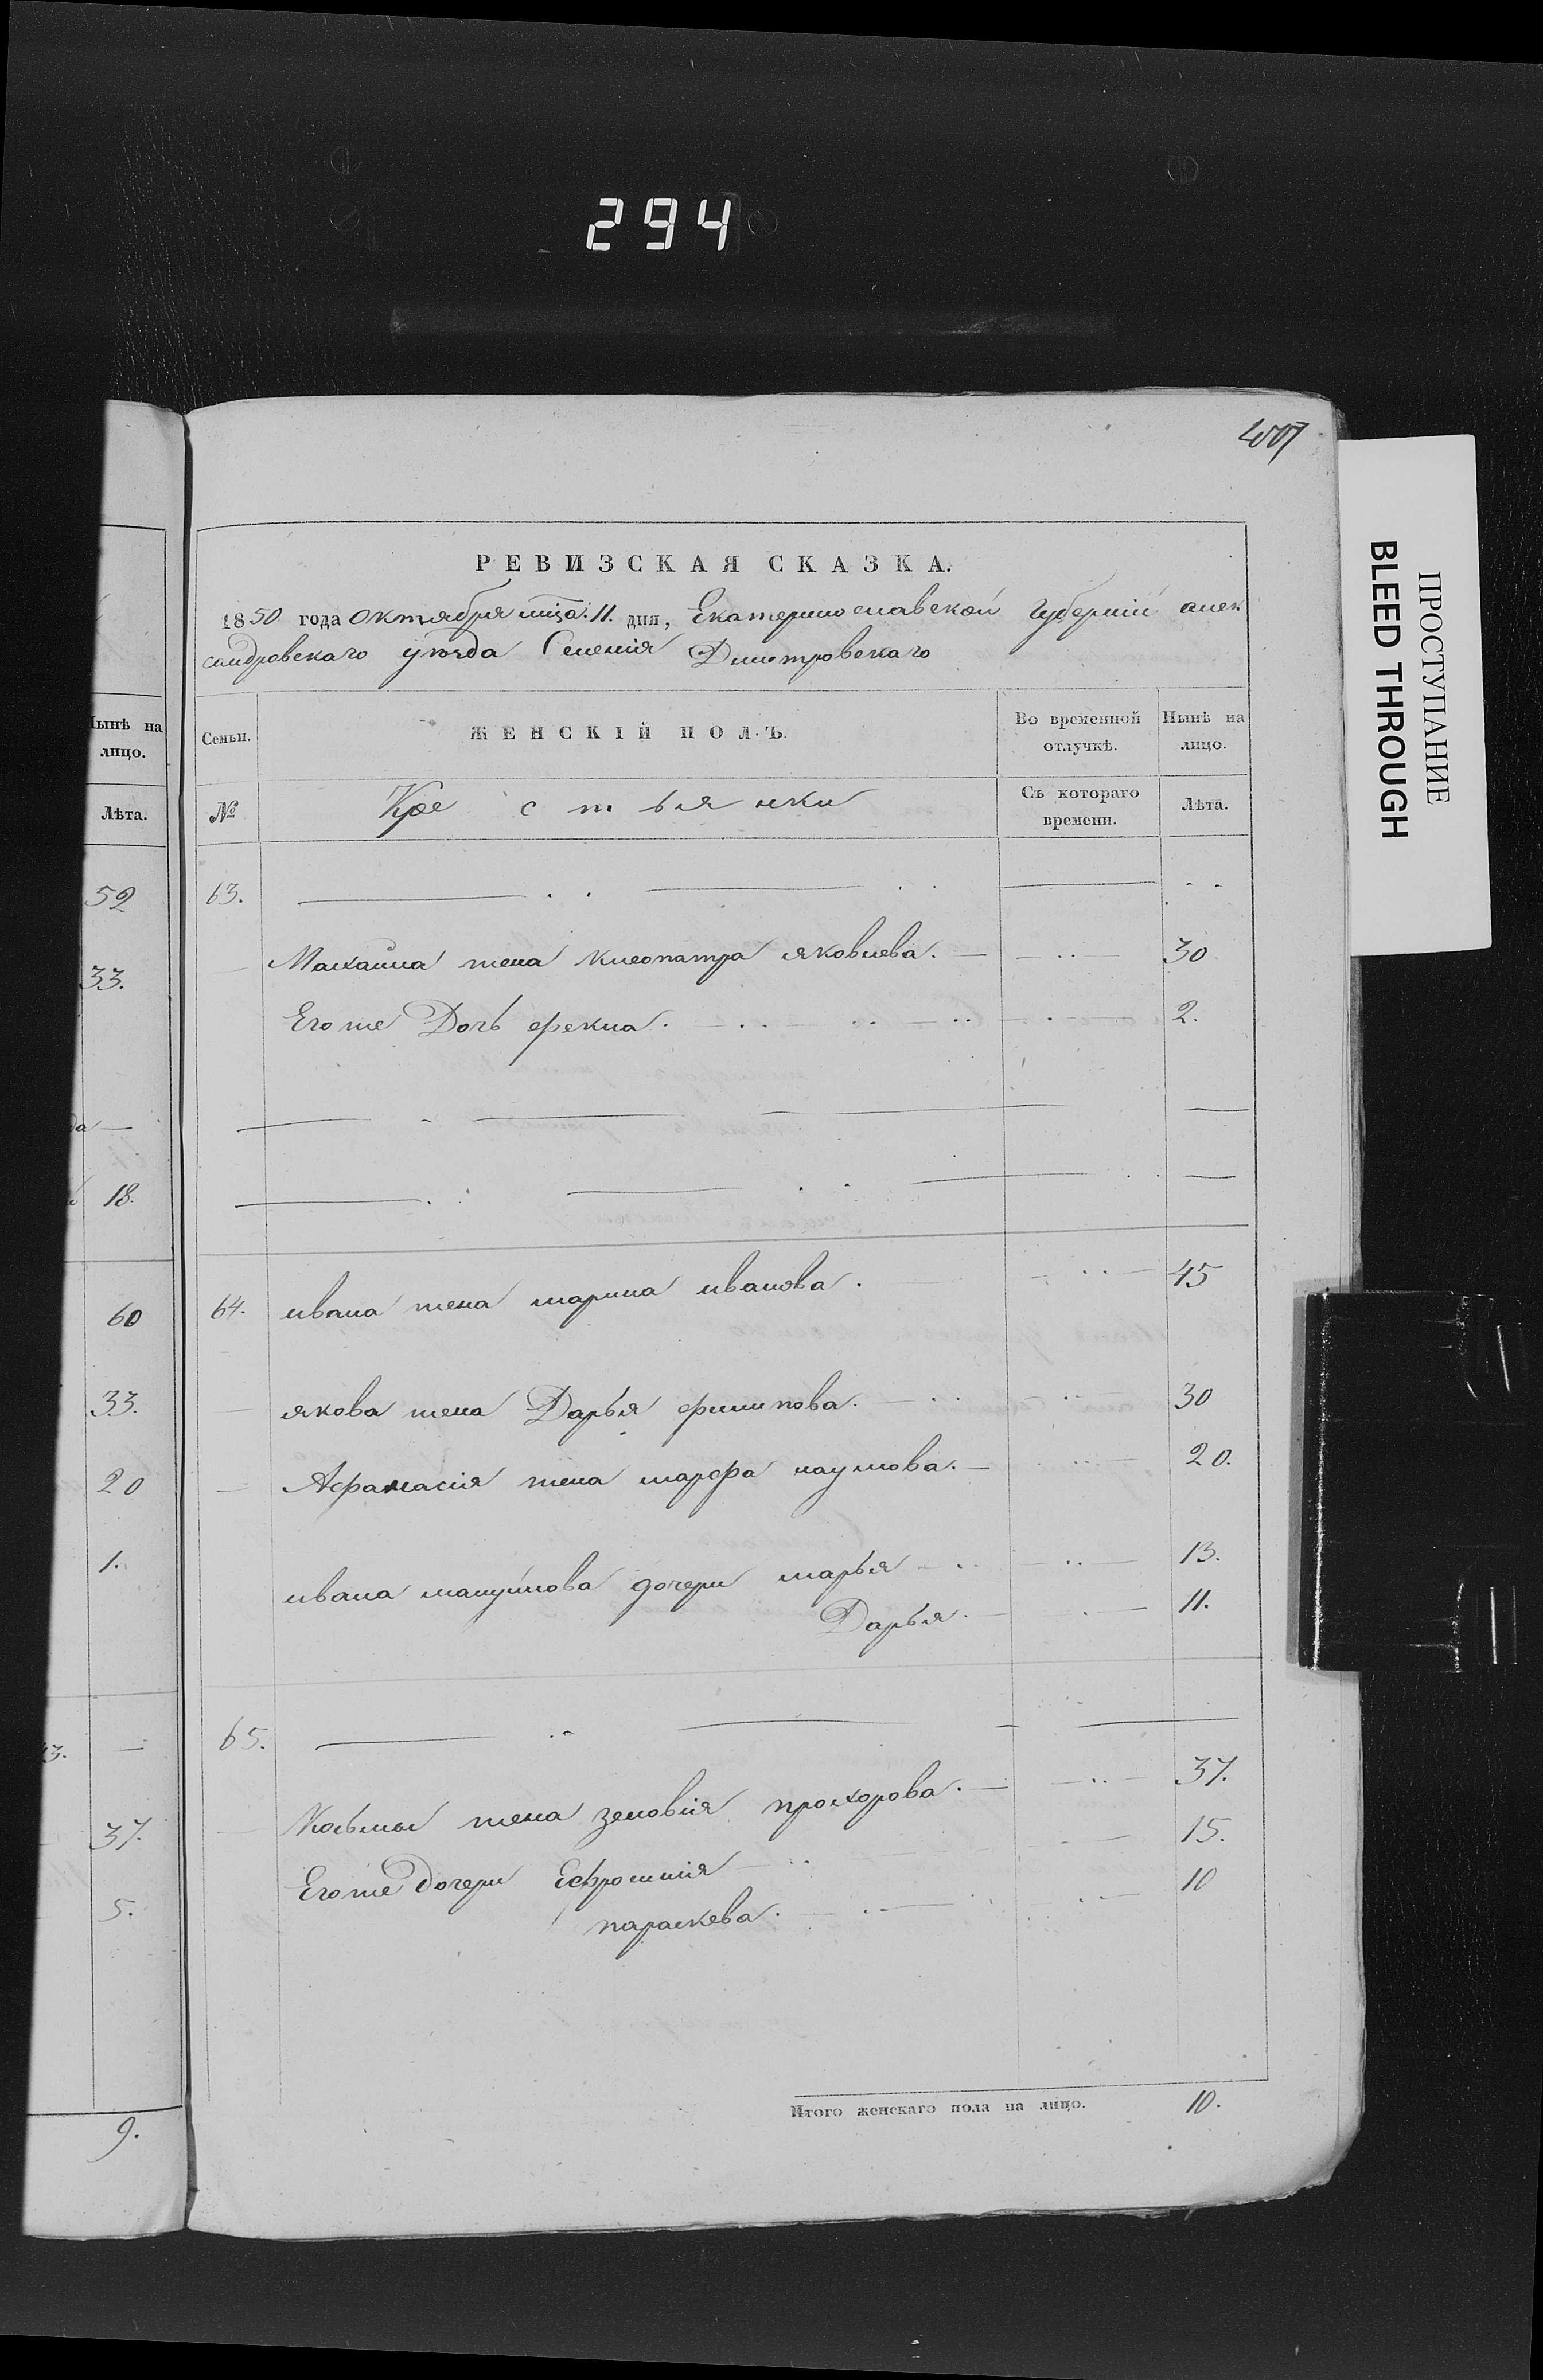 294
РЕВИЗСКАЯ СКАЗКА.
1850 года октября мца 11. дня, Екатеринославской Губернiи алек
сандровскаго уѣзда Селенiя Дмитровскаго
Семьи. ЖЕНСКIЙ ПОЛЪ. Во временной отлучкѣ. Нынѣ на лицо.
№ Крестьянки Съ котораго времени. Лѣта.
63.
Михайла жена Клеопатра яковлева. 30
Его же Дочь фекла. 2.
64. ивана жена марина иванова. 45
якова жена Дарья филипова. 30
Афанасiя жена марфа наумова. 20.
ивана мануйлова дочери марья 13.
Дарья. 11.
65.
Козьмы жена зеновiя прохорова. 37.
Его же Дочери Ефросинiя 15.
параскева. 10
Итого женскаго пола на лицо. 10.
Нынѣ на
лицо.
Лѣта.
52
33.
18.
60
33.
20
1.
37.
5.
9.
ПРОСТУПАНИЕ
BLEED THROUGH